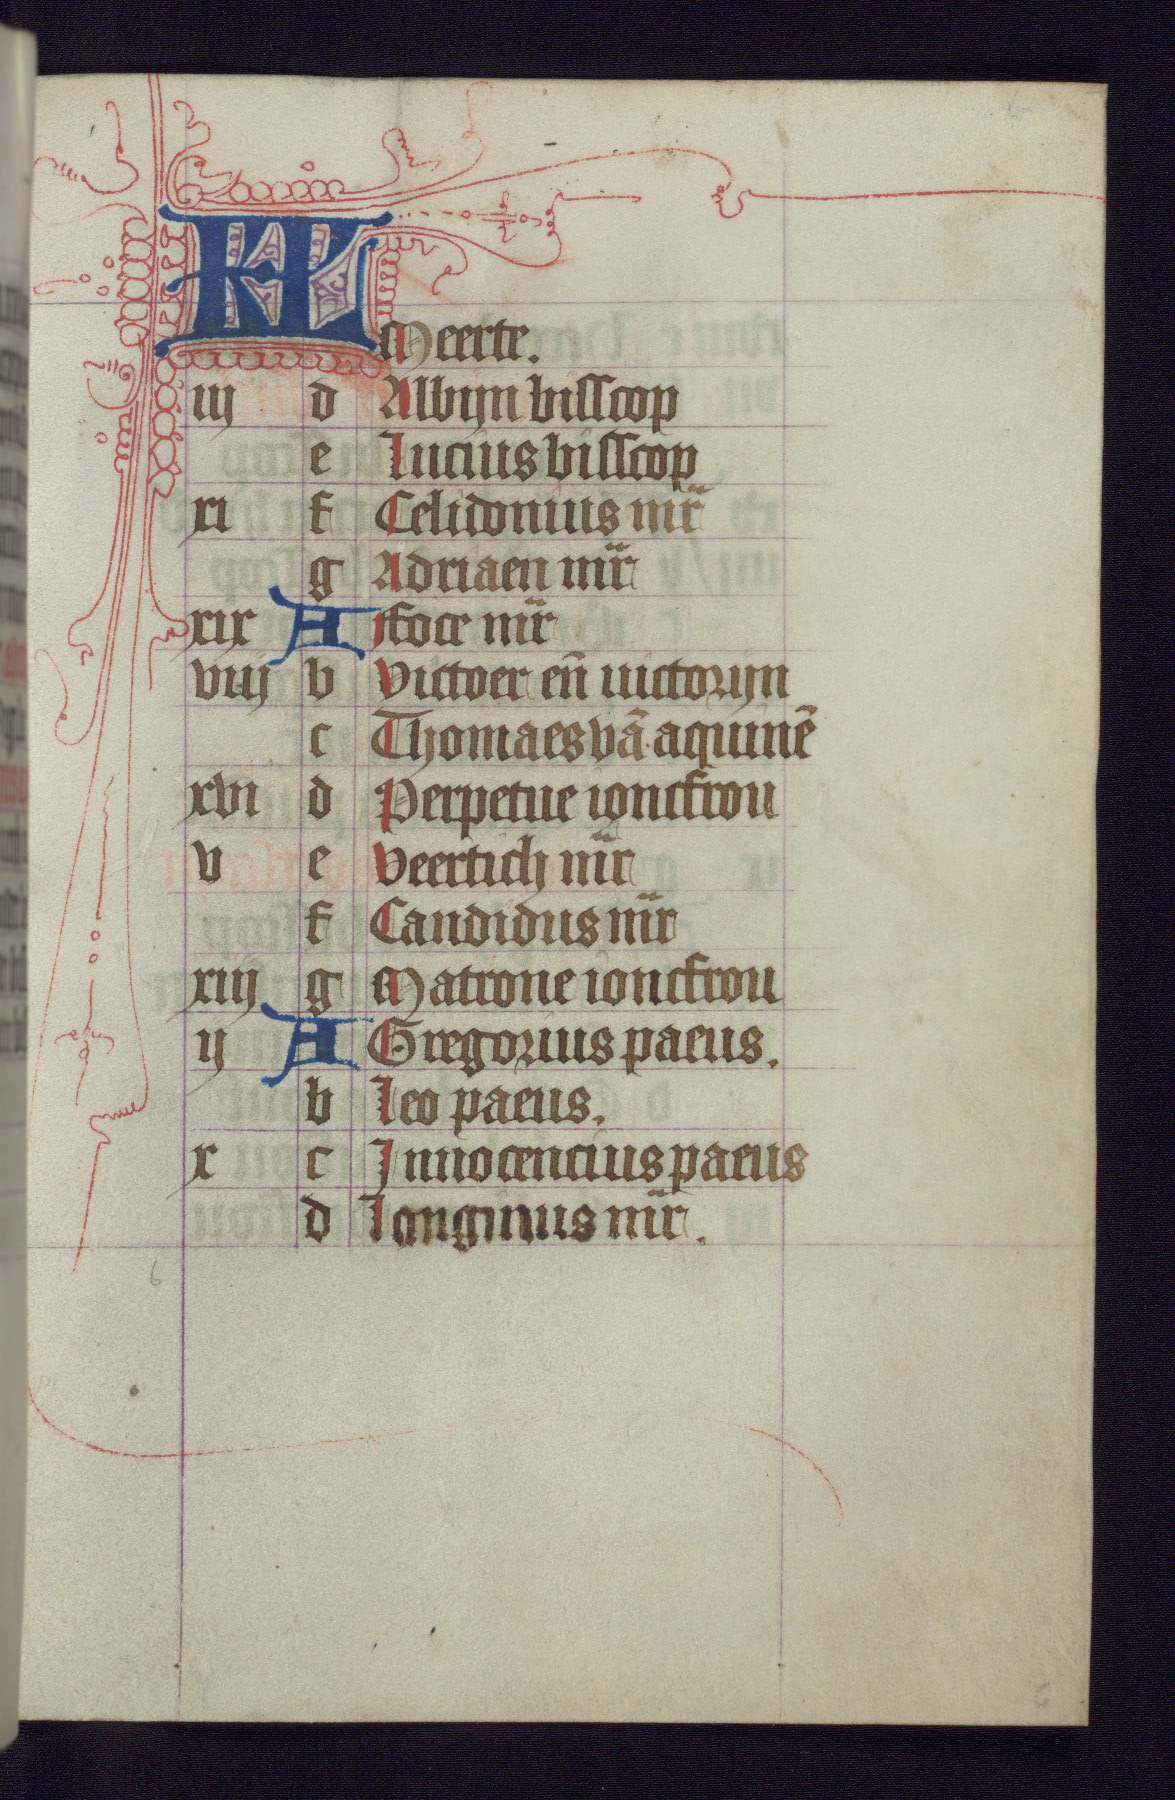 KL Meerte.
iij d Albijn bisscop
e Lucius bisscop
xi f Celidonius mr̄
g Adriaen mr̄
xix A ffoce mr̄
viij b Victoer en̄ victorijn
c Thomaes vā aquinē
xvi d Perpetue ioncfrou
v e Veertich mr̄
f Candidus mr̄
xiij g Matrone ioncfrou
ij A Gregorius paeus.
b Leo paeus.
x c Innocencius paeus
d Longinus mr̄.
6